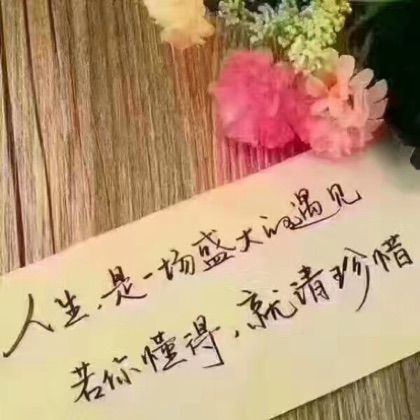 人生，是一场盛大的遇见
若你懂得，就请珍惜